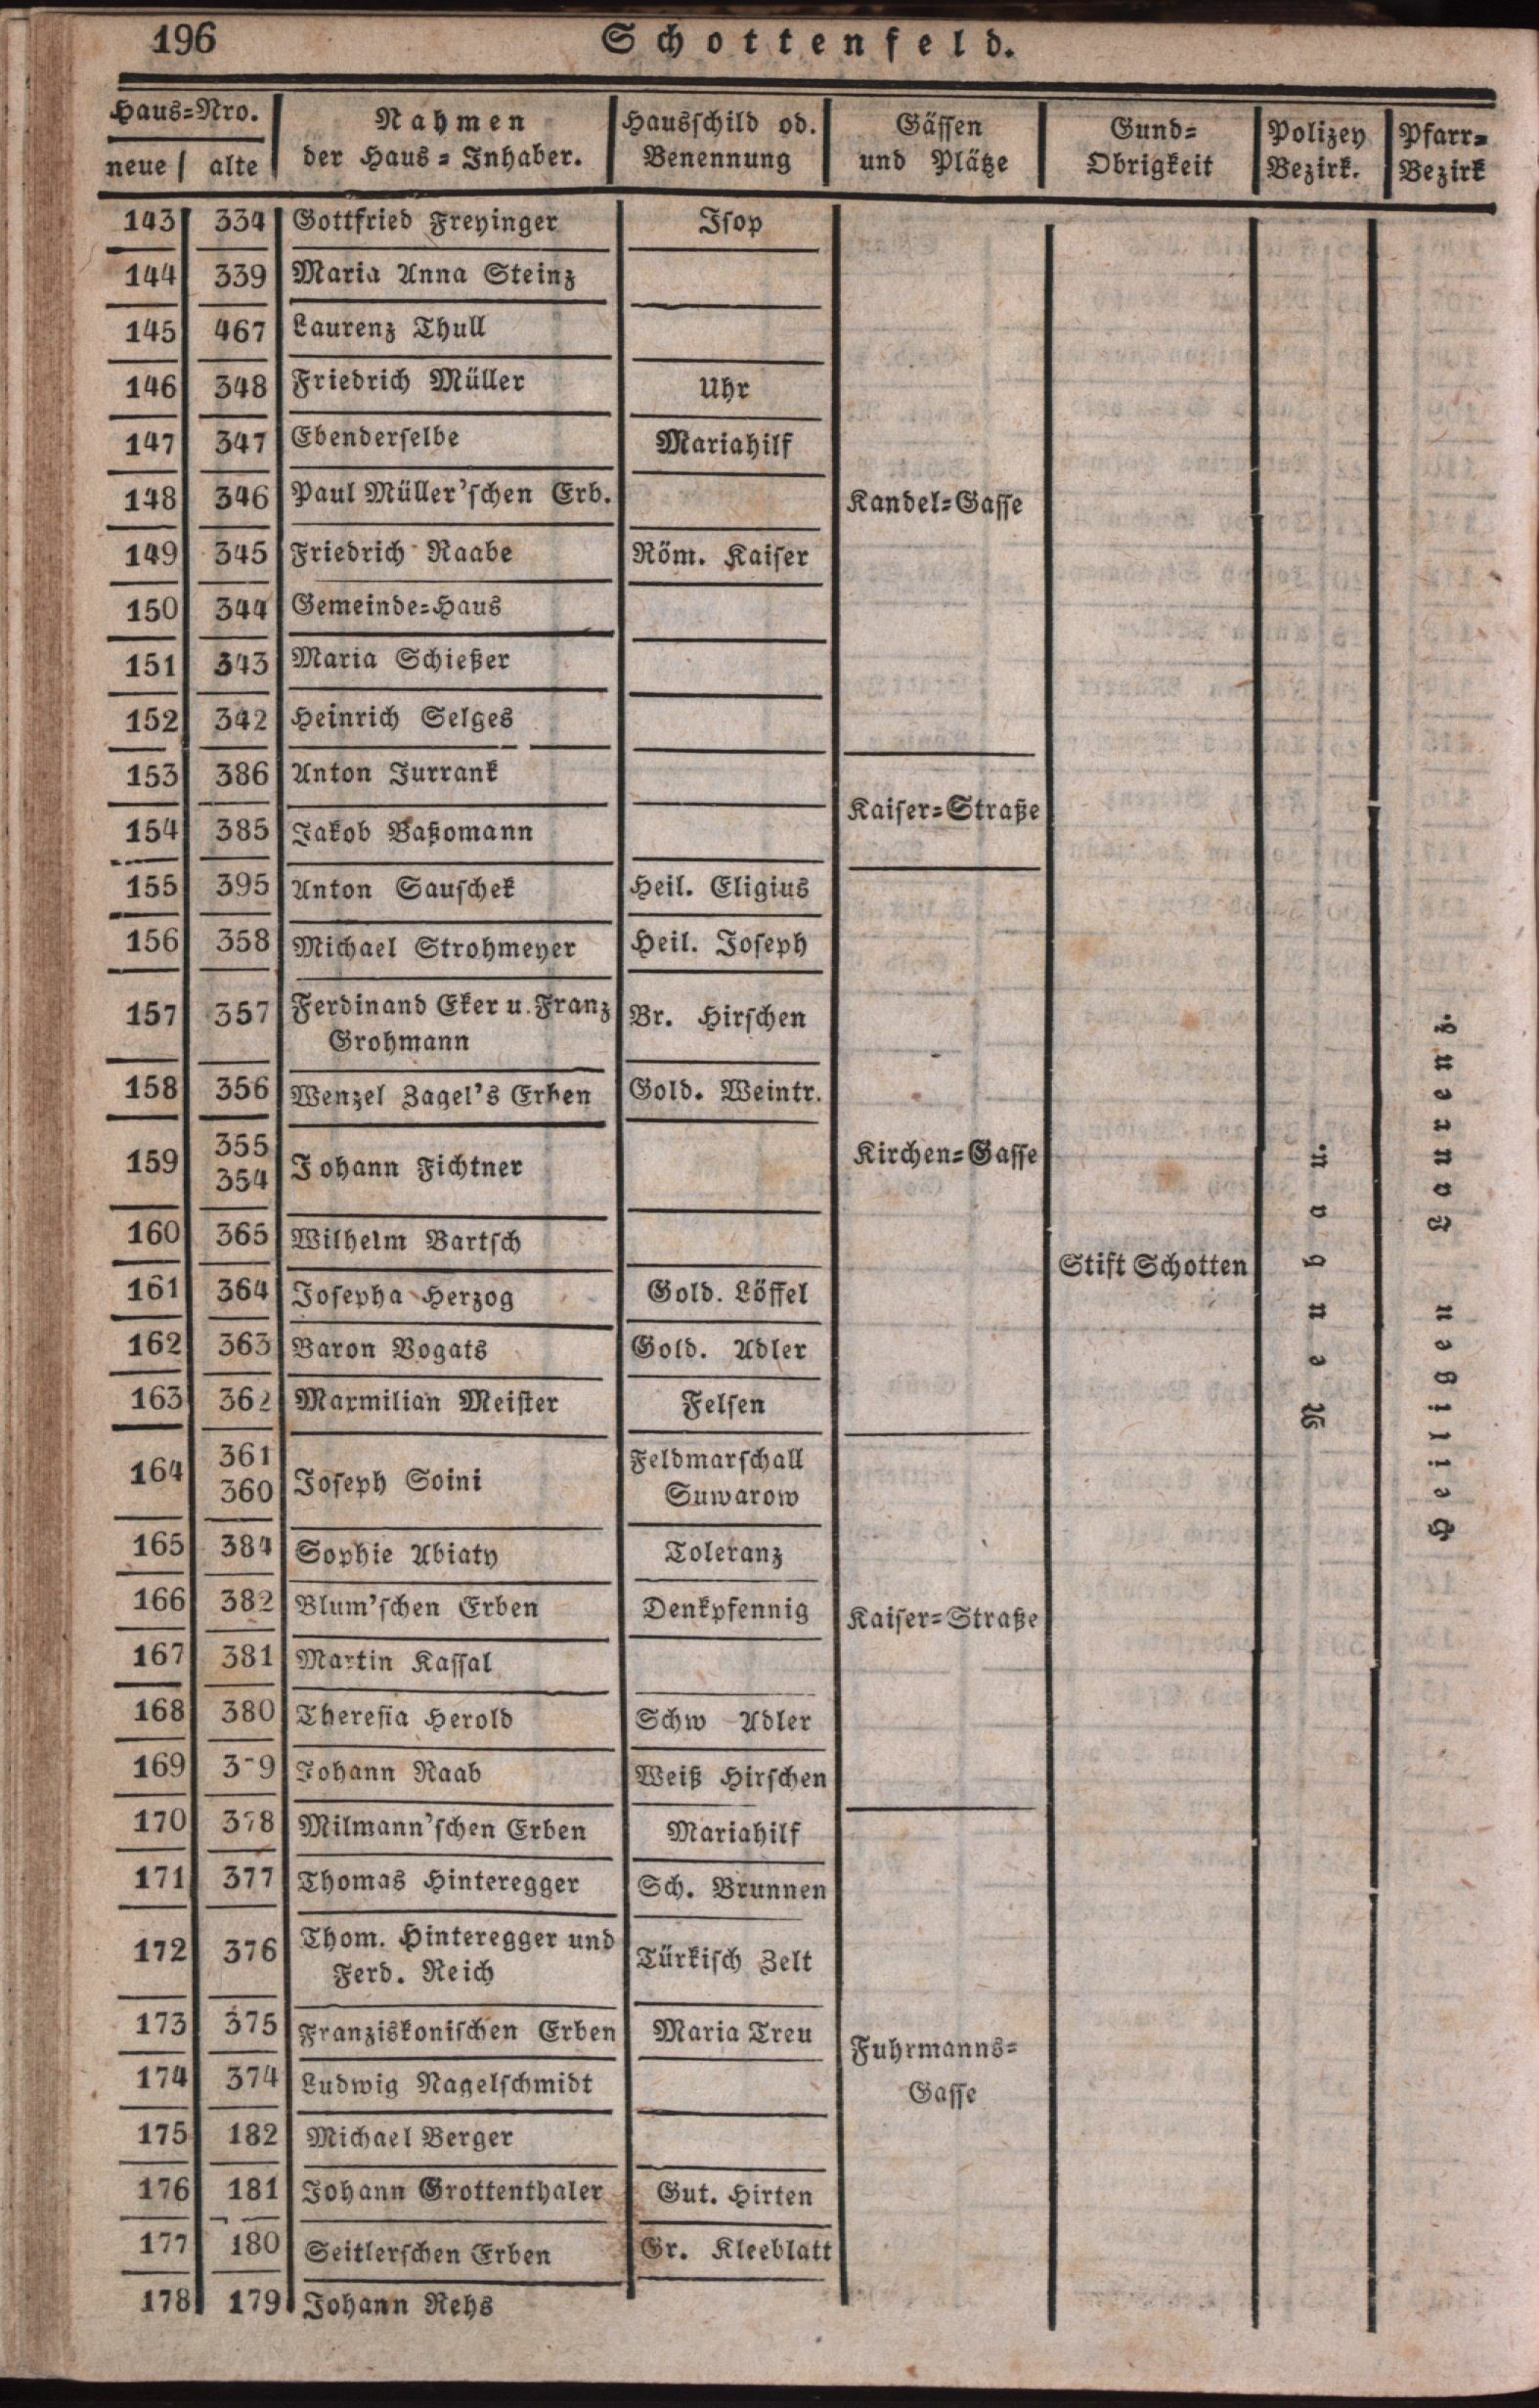 196 Schottenfeld.
Haus=Nro. Nahmen Hausschild od. Gässen Gund= Polizey Pfarr=
neue alte der Haus=Inhaber. Benennung und Plätze Obrigkeit Bezirk. Bezirk
143 334 Gottfried Freyinger Isop
144 339 Maria Anna Steinz
145 467 Laurenz Thull
146 348 Friedrich Müller Uhr
147 347 Ebenderselbe Mariahilf
148 346 Paul Müller'schen Erb. Kandel=Gasse
149 345 Friedrich Raabe Röm. Kaiser
150 344 Gemeinde=Haus
151 343 Maria Schießer
152 342 Heinrich Selges
153 386 Anton Jurrank
Kaiser=Straße
154 385 Jakob Baßomann
155 395 Anton Sauschek Heil. Eligius
156 358 Michael Strohmeyer Heil. Joseph
157 357 Ferdinand Eker u. Franz Br. Hirschen
Grohmann
158 356 Wenzel Zagel's Erben Gold. Weintr.
355
159 Johann Fichtner Kirchen=Gasse
354
160 365 Wilhelm Bartsch
Stift Schotten
Neubau.
Heiligen Laurenz.
161 364 Josepha Herzog Gold. Löffel
162 363 Baron Vogats Gold. Adler
163 362 Maxmilian Meister Felsen
361 Feldmarschall
164 Joseph Soini
360 Suwarow
165 384 Sophie Abiaty Toleranz
166 382 Blum'schen Erben Denkpfennig Kaiser=Straße
167 381 Martin Kassal
168 380 Theresia Herold Schw Adler
169 3 9 Johann Raab Weiß Hirschen
170 378 Milmann'schen Erben Mariahilf
171 377 Thomas Hinteregger Sch. Brunnen
172 376 Thom. Hinteregger und Türkisch Zelt
Ferd. Reich
173 375 Franziskonischen Erben Maria Treu Fuhrmanns=
174 374 Ludwig Nagelschmidt Gasse
175 182 Michael Berger
176 181 Johann Grottenthaler Gut. Hirten
177 180 Seitlerschen Erben Gr. Kleeblatt
178 179 Johann Rehs